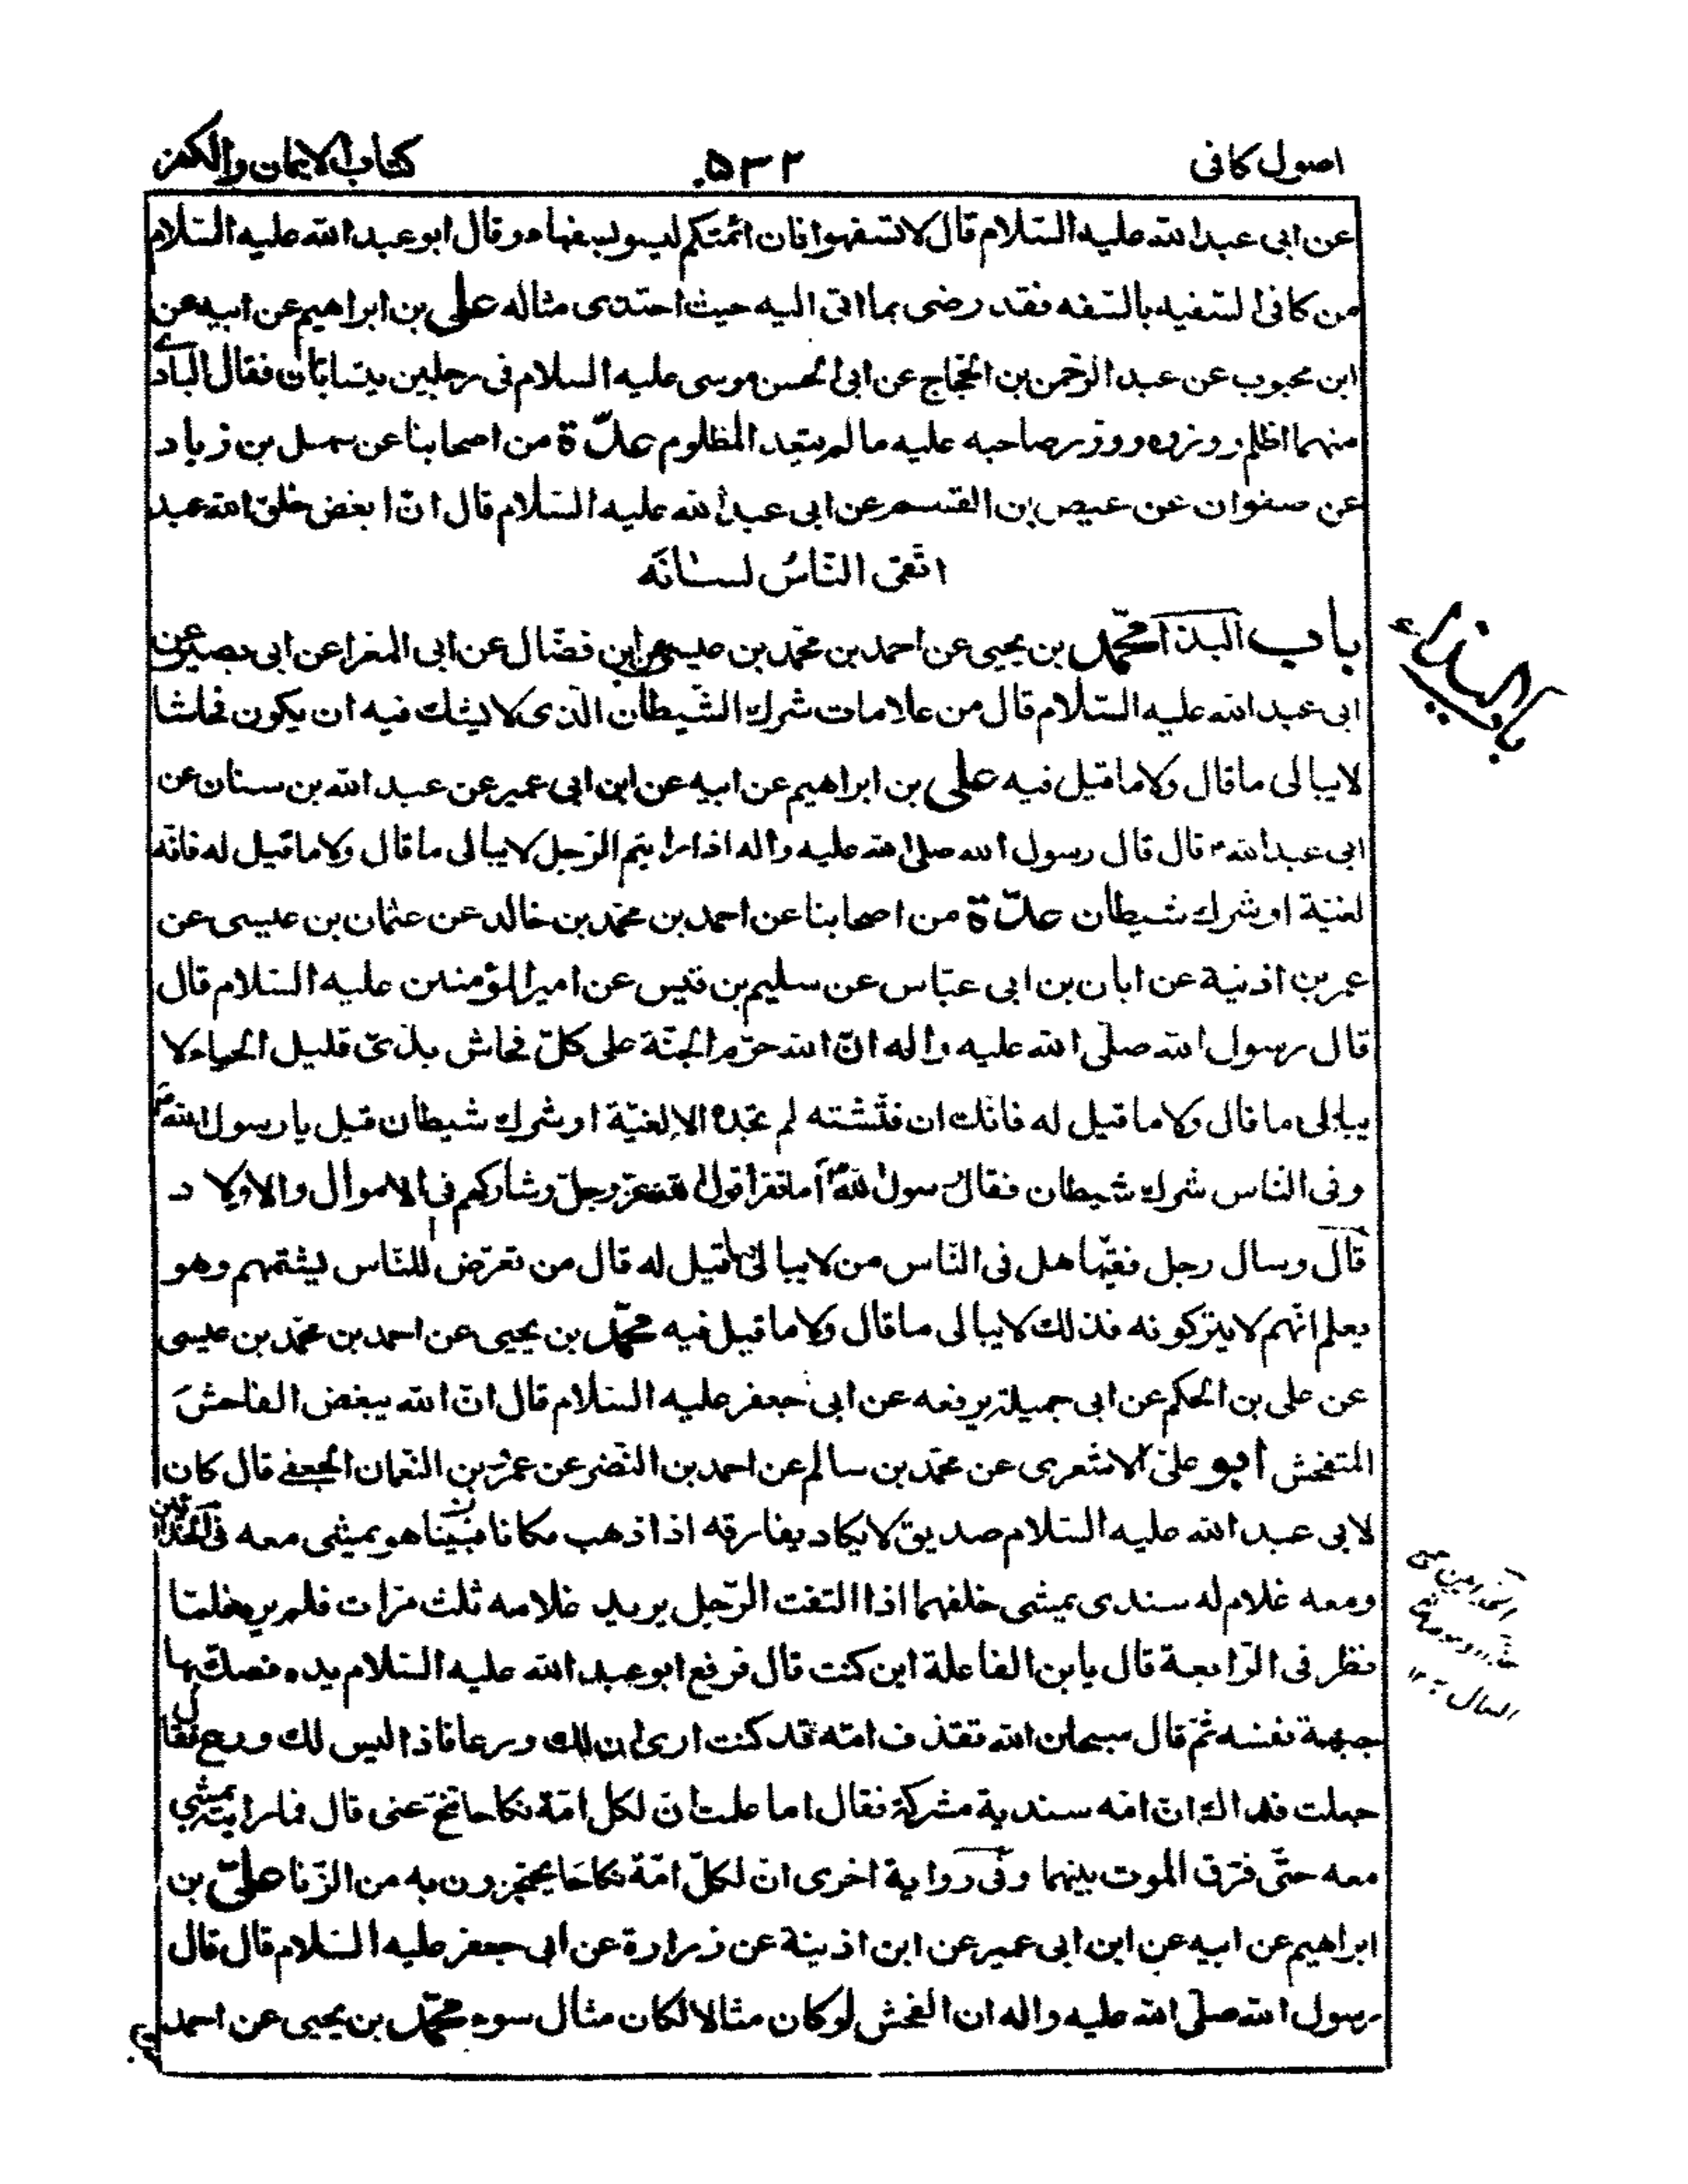 اصول كافى
۵۳۲
كتاب الايمان والكفر
عن ابى عبدالله عليه السّلام قال لا تسفهوا فان ائمتكم ليسو بسفهاء وقال ابو عبدالله عليه السّلام
من كافئ السّفيه بالسّفه فقد رضى بما اتى اليه حيث احتذى مثاله على بن ابراهيم عن ابيه عن
ابن محبوب عن عبد الرّحمن بن الحجّاج عن ابى الحسن موسى عليه السلام فى رجلين يتسابّان فقال البادى
منهما اظلم ووزره ووزر صاحبه عليه ما لم يتعد المظلوم عدّة من اصحابنا عن سهل بن زياد
عن صفوان عن عيص بن القسم عن ابى عبدالله عليه السّلام قال انّ ابغض خلق الله عبد
اتّقى النّاسُ لسانَه
باب البذا محمّد بن يحيى عن احمد بن محمّد بن عيسى عن ابن فضّال عن ابى المغرا عن ابى بصير عن
ابى عبدالله عليه السّلام قال من علامات شرك الشّيطان الّذى لا يشك فيه ان يكون فحاشا
لا يبالى ما قال ولا ما قيل فيه على بن ابراهيم عن ابيه عن ابن ابى عمير عن عبدالله بن سنان عن
ابى عبدالله قال قال رسول الله صلى الله عليه واله اذا رايتم الرّجل لا يبالى ما قال ولا ما قيل له فانّه
لغيّة او شرك شيطان عدّة من اصحابنا عن احمد بن محمّد بن خالد عن عثمان بن عيسى عن
عمر بن اذنية عن ابان بن ابى عبّاس عن سليم بن قيس عن امير المؤمنين عليه السّلام قال
قال رسول الله صلّى الله عليه واله انّ الله حرّم الجنّة على كلّ فحاش بذىّ قليل الحياء لا
يبالى ما قال ولا ما قيل له فانّك ان فتّشته لم تجده الا لغيّة او شرك شيطان قيل يا رسول الله ص
وفى النّاس شرك شيطان فقال رسول الله ص أما تقرا قول الله عزّ وجلّ وشاركهم فى الاموال والاولاد
قال وسال رجل فقيها هل فى النّاس من لا يبالى ما قيل له قال من تعرّض للنّاس يشتمهم وهو
يعلم انّهم لا يتركونه فذلك لا يبالى ما قال ولا ما قيل فيه محمّد بن يحيى عن احمد بن محمّد بن عيسى
عن على بن الحكم عن ابى جميلة يرفعه عن ابى جعفر عليه السّلام قال انّ الله يبغض الفاحشَ
المتفحّش ابو علىّ الاشعرى عن محمّد بن سالم عن احمد بن النّضر عن عمرو بن النّعمان الجعفى قال كان
لابى عبدالله عليه السّلام صديق لا يكاد يفارقه اذا ذهب مكانا فبينا هو يمشى معه فى الحذّائين
ومعه غلام له سندى يمشى خلفهما اذا التفت الرّجل يريد غلامه ثلث مرّات فلم يره فلمّا
نظر فى الرّابعة قال يا بن الفاعلة اين كنت قال فرفع ابو عبدالله عليه السّلام يده فصكّ بها
جبهة نفسه ثمّ قال سبحان الله تقذف امّه قد كنت ارى ان لك ورعا فاذا ليس لك ورع فقال
جعلت فداك انّ امّه سندية مشركة فقال اما علمت ان لكل امّة نكاحا تنحّ عنى قال فما رايته يمشى
معه حتّى فرّق الموت بينهما وفى رواية اخرى ان لكلّ امّة نكاحًا يحتجزون به من الزّنا علىّ بن
ابراهيم عن ابيه عن ابن ابى عمير عن ابن اذينة عن زرارة عن ابى جعفر عليه السّلام قال قال
رسول الله صلّى الله عليه واله ان الفحش لو كان مثالا لكان مثال سوء محمّد بن يحيى عن احمد